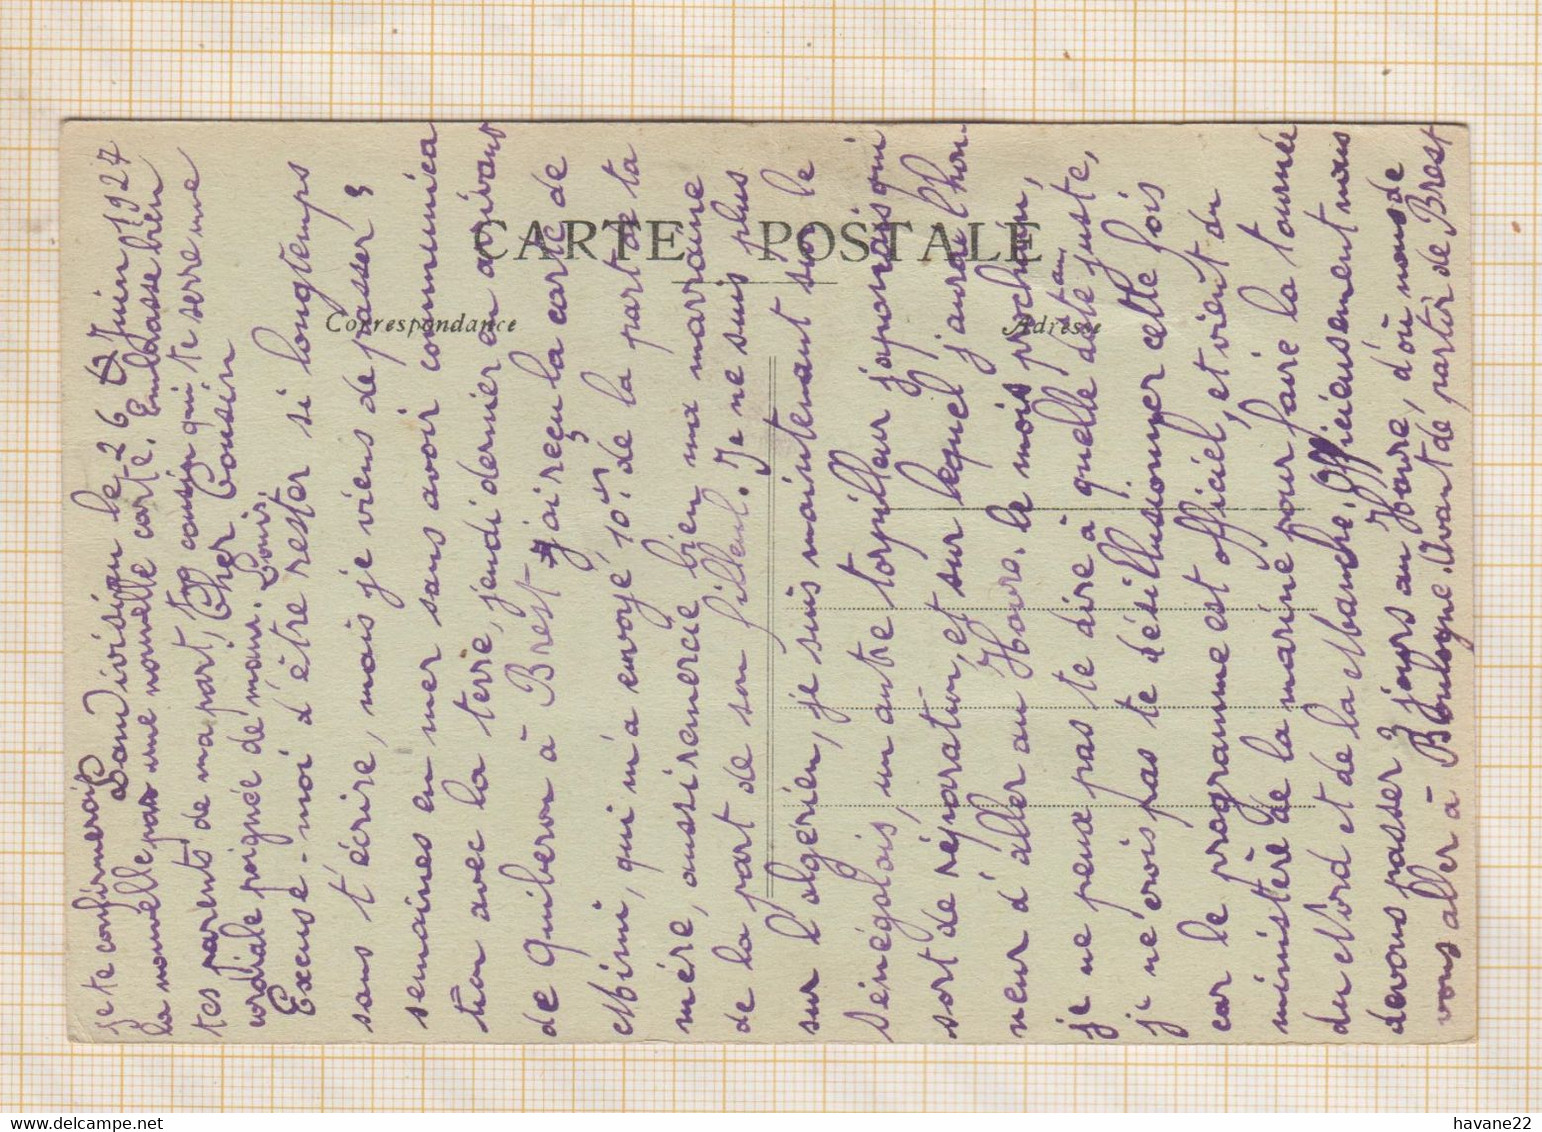 CARTE POSTALE
Correspondance
Adresse
Landivisiau le 26 Juin 1927
Cher Cousin
Excuse-moi d'être rester si longtemps
sans t'écrire, mais je viens de passer 3
semaines en mer sans avoir communica
tion avec la terre, jeudi dernier en arrivant
de Quiberon à Brest j'ai reçu la carte de
Mimi, qui m'a envoyé 10 de la part de ta
mère, aussi remercie bien ma marraine
de la part de son filleul. Je ne suis plus
sur l'algérien, je suis maintenant sur le
Sénégalais, un autre torpilleur japonais qui
sort de réparation, et sur lequel j'aurai l'hon
neur d'aller au Havre. le mois prochain,
je ne peux pas te dire à quelle date juste,
je ne crois pas te désillusionner cette fois
car le programme est officiel, et vient du
ministère de la marine pour faire la tournée
du Nord et de la Manche. Officieusement nous
devons passer 3 jours au Havre, d'où nous de
vons aller à Boulogne. Avant de partir de Brest
je te confirmerais
la nouvelle par une nouvelle carte. Embrasse bien
tes parents de ma part, ton cousin qui te serre une
cordiale poignée de main. Louis.
havane22